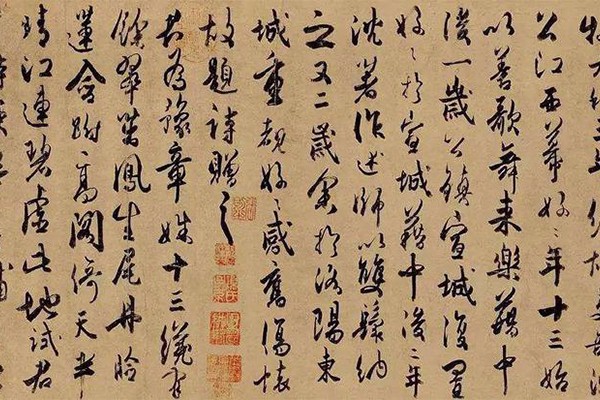 牧大和三年佐故吏部沈
公江西幕好〻年十三始
以善歌舞来樂籍中
後一歲公鎮宣城復置
好〻於宣城籍中後二年
沈著作述師以雙鬟納
之又二歲余於洛陽東
城重覩好〻感舊傷懷
故題詩贈之
君為豫章姝十三纔有
餘翠茁鳳生尾丹臉
蓮含跗高閣倚天半
晴江連碧虛此地試君